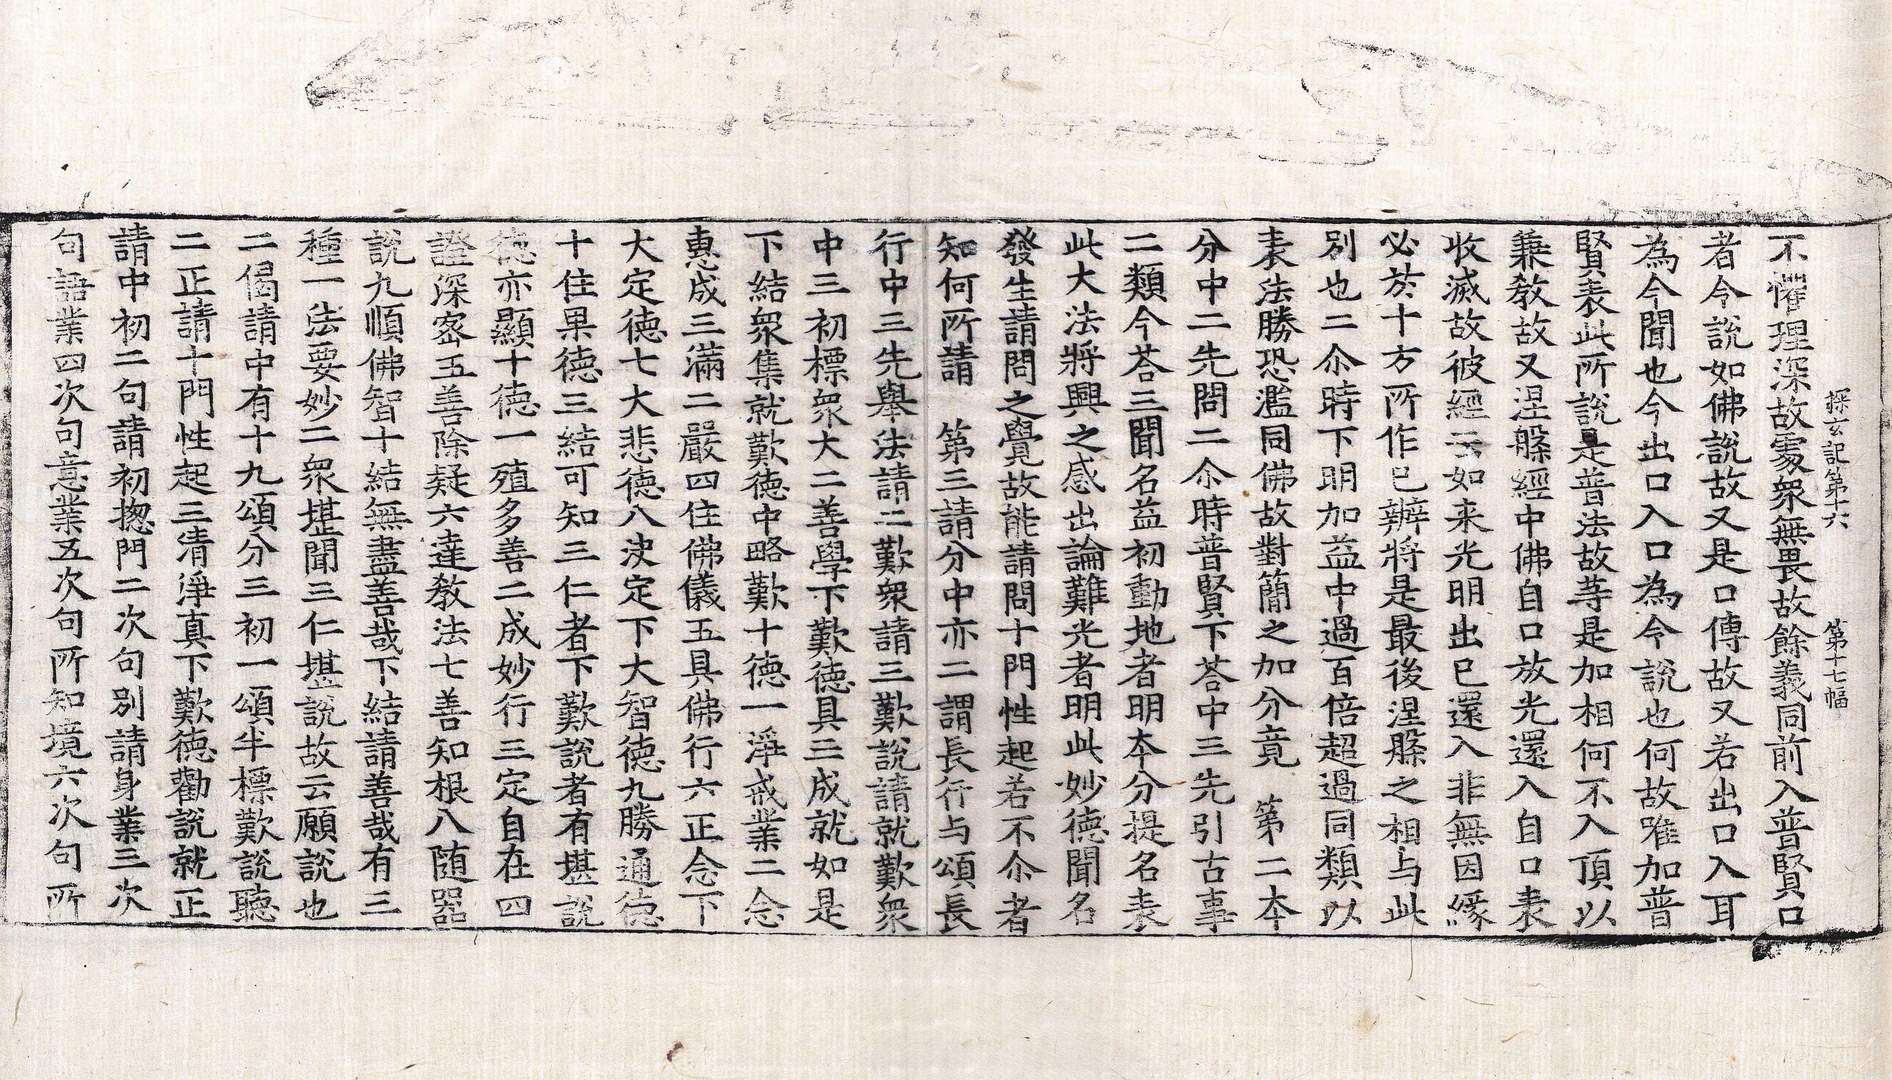 探玄記第十六　第十七幅
不懼理深故處衆無畏故餘義同前入普賢口
者令說如佛說故又是口傳故又若出口入耳
為令聞也今出口入口為令說也何故唯加普
賢表此所說是普法故等是加相何不入頂以
兼教故又涅槃經中佛自口放光還入自口表
收滅故彼經云如来光明出已還入非無因緣
必於十方所作已辦將是最後涅槃之相与此
別也二尒時下明加益中過百倍超過同類以
表法勝恐濫同佛故對簡之加分竟　第二夲
分中二先問二尒時普賢下荅中三先引古事
二類今荅三聞名益初動地者明夲分提名表
此大法將興之感出論難光者明此妙德聞名
發生請問之覺故能請問十門性起若不尒者
知何所請　第三請分中亦二謂長行与頌長
行中三先舉法請二歎衆請三歎說請就歎衆
中三初標衆大二善學下歎德具三成就如是
下結衆集就歎德中略歎十德一淨戒業二念
惠成三滿二嚴四住佛儀五具佛行六正念下
大定德七大悲德八决定下大智德九勝通德
十住果德三結可知三仁者下歎說者有堪說
德亦顯十德一殖多善二成妙行三定自在四
證深密五善除疑六達教法七善知根八随器
說九順佛智十結無盡善哉下結請善哉有三
種一法要妙二衆堪聞三仁堪說故云願說也
二偈請中有十九頌分三初一頌半標歎說聽
二正請十門性起三清淨真下歎德勸說就正
請中初二句請初揔門二次句別請身業三次
句語業四次句意業五次句所知境六次句所